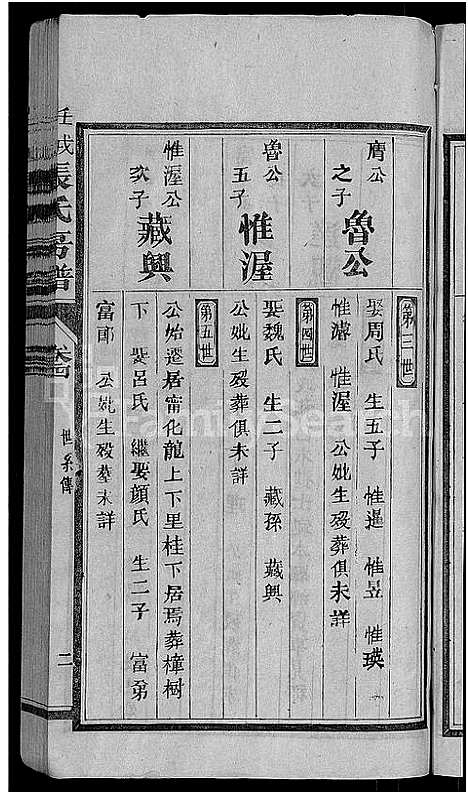 膺公
之子
魯公
第三世
娶周氏 生五子 惟暹 惟昱 惟瑛
惟濬 惟渥 公妣生殁葬俱未詳
魯公
五子
惟渥
第四世
娶魏氏 生二子 藏孫 藏興
公妣生殁葬俱未詳
惟渥公
次子
藏興
第五世
公始遷居甯化龍上下里桂下居焉葬樟樹
下 娶呂氏 繼娶顔氏 生二子 富弟
富郎 公妣生殁葬未詳
壬戌張氏房譜
世系傳
二